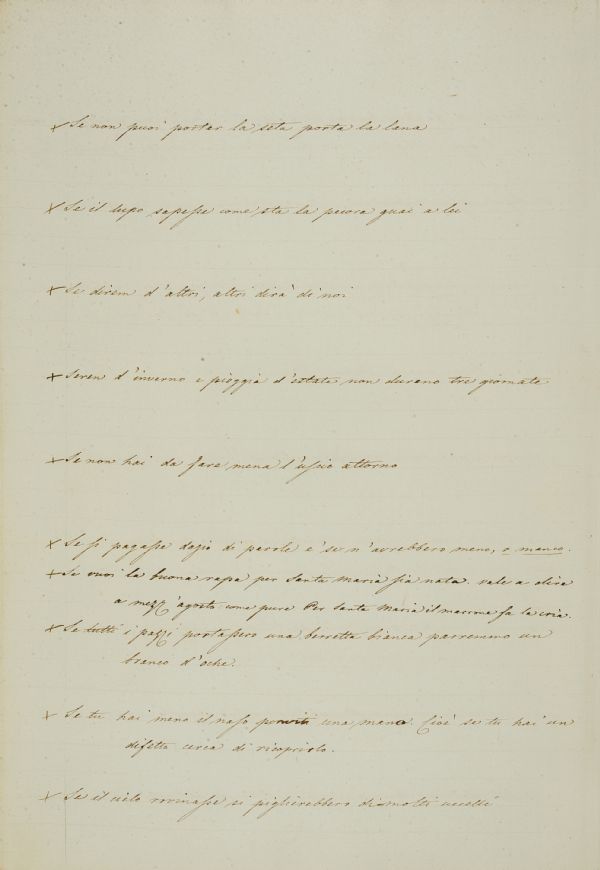 × Se non puoi portar la seta porta la lana
× Se il lupo sapesse come sta la pecora guai a lei
× Se direm d'altri, altri dirà di noi
× Seren d'inverno e pioggia d'estate non durano tre giornate
× Se non hai da fare mena l'uscio attorno
× Se si pagasse dazio di parole e' se n'avrebbero meno, o manco.
× Se vuoi la buona rapa per Santa Maria sia nata. vale a dire
a mezz'agosto come pure Per Santa Maria il marrone fa la cria.
× Se tutti i pazzi portassero una berretta bianca parremmo un
branco d'oche.
× Se tu hai meno il naso ponviti una mano. Cioè se tu hai un
difetto cerca di ricoprirlo.
× Se il cielo rovinasse si piglierebbero dimolti uccelli